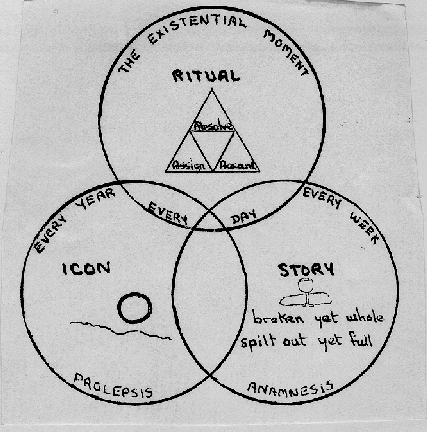 THE EXISTENTIAL MOMENT
RITUAL
Resolve
Assign Accent
EVERY YEAR
EVERY DAY
EVERY WEEK
ICON
STORY
broken yet whole
spilt out yet full
PROLEPSIS
ANAMNESIS